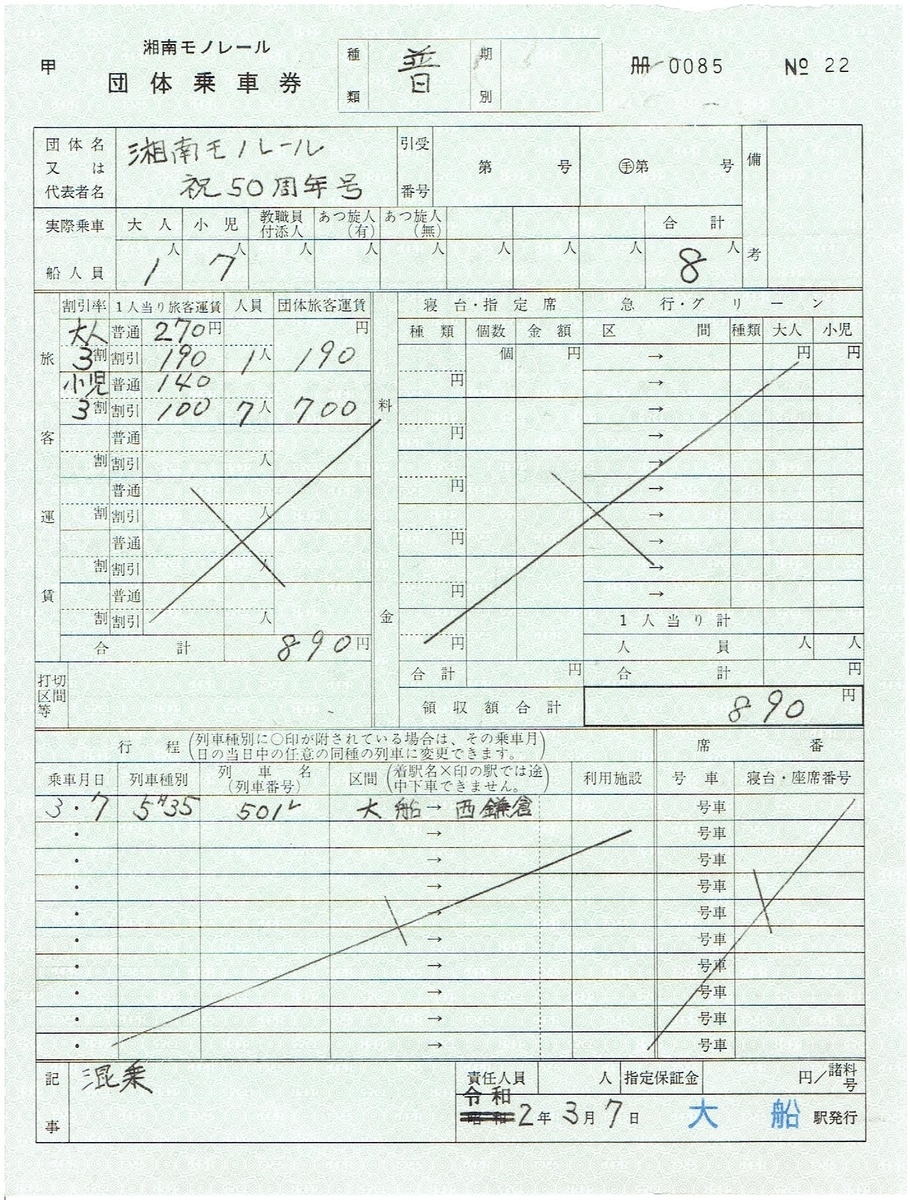 甲
湘南モノレール
団体乗車券
種類 普 期別
冊 0085 № 22
団体名又は代表者名 湘南モノレール祝50周年号
引受番号 第 号 ㊙第 号 備考
実際乗車船人員 大人 小児 教職員付添人 あつ旋人(有) あつ旋人(無) 合計
1人 7人 人 人 人 人 人 人 8人
旅客運賃 割引率 1人当り旅客運賃 人員 団体旅客運賃
大人 普通 270円 円
3割 割引 190 1人 190
小児 普通 140
3割 割引 100 7人 700
普通
割 割引 人
普通
割 割引 人
普通
割 割引 人
普通
割 割引 人
合計 890円
料金 寝台・指定席 急行・グリーン
種類 個数 金額 区間 種類 大人 小児
個 円 → 円 円
円 →
→
円 →
→
円 →
→
円 →
→
円 →
1人当り計
円 人員 人 人
合計 円 合計 円
領収額合計 890円
打切区間等
行程 (列車種別に○印が附されている場合は、その乗車月日の当日中の任意の同種の列車に変更できます。) 席番
乗車月日 列車種別 列車名(列車番号) 区間 (着駅名×印の駅では途中下車できません。) 利用施設 号車 寝台・座席番号
3・7 5H35 501レ 大船→西鎌倉 号車
・ → 号車
・ → 号車
・ → 号車
・ → 号車
・ → 号車
・ → 号車
・ → 号車
・ → 号車
・ → 号車
記事 混乗
責任人員 人 指定保証金 円/諸料号
令和
昭和 2年3月7日 大船駅発行